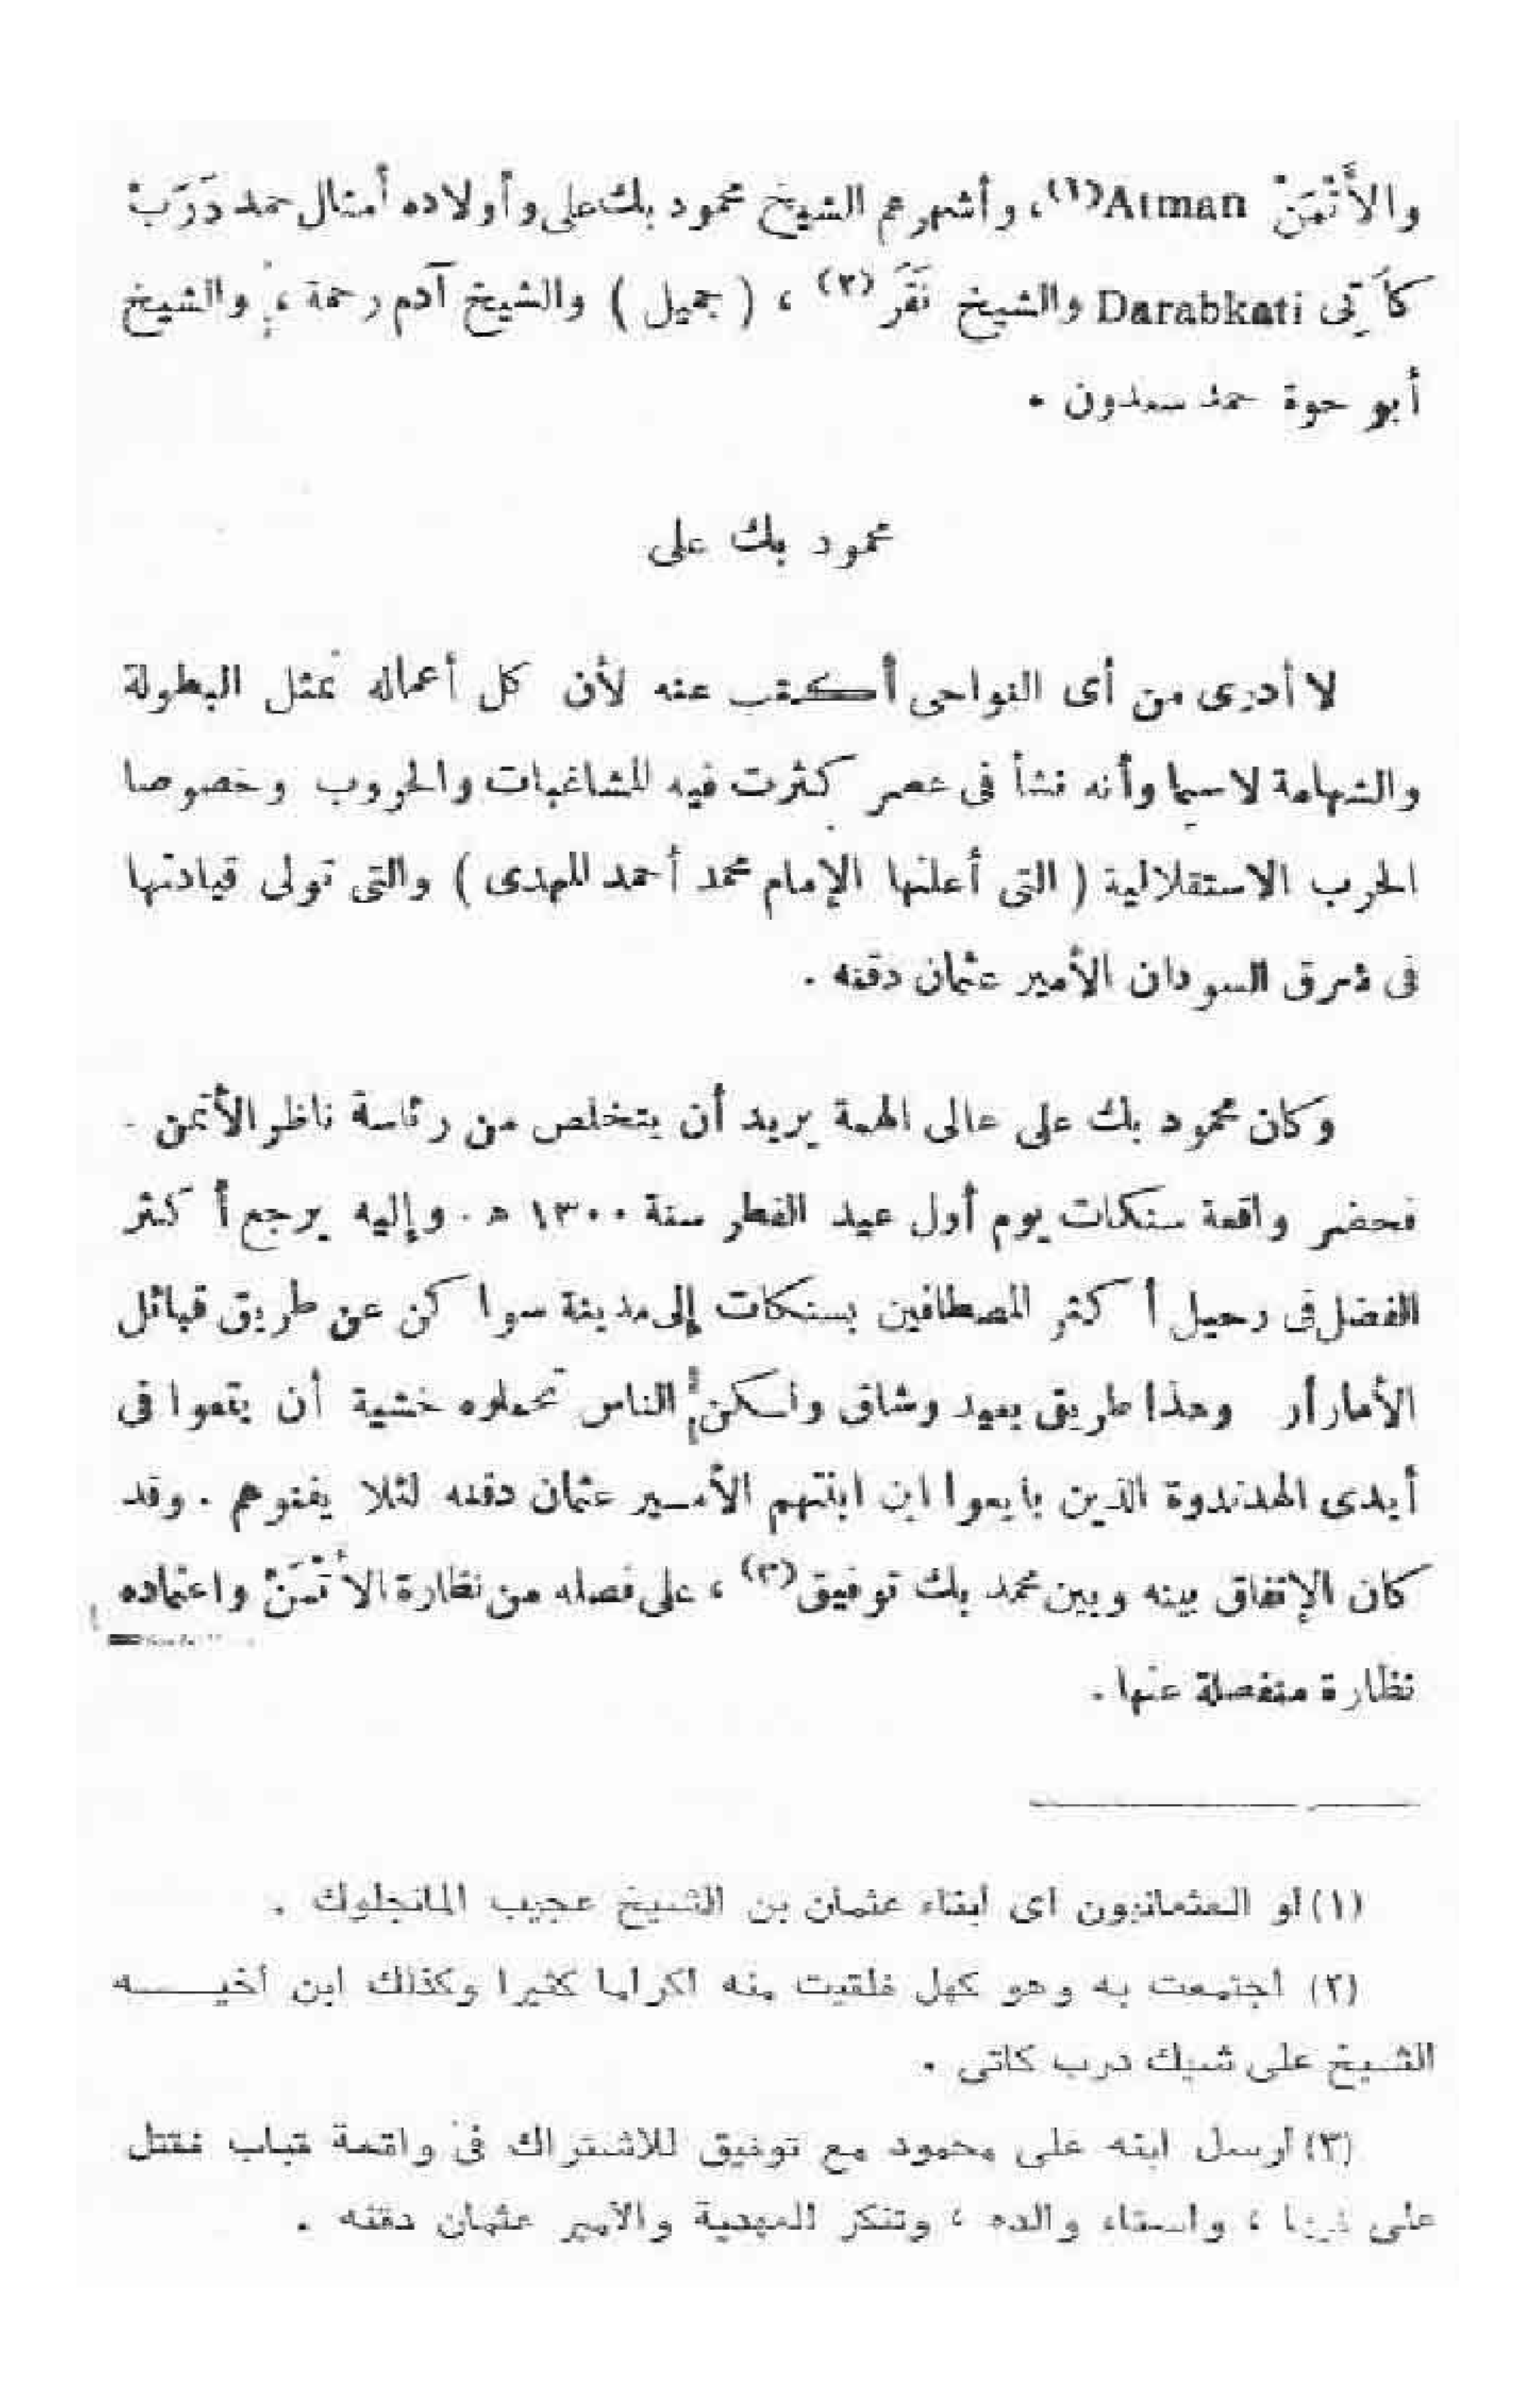 والأَتْمَنْ Atman(١)، وأشهرهم الشيخ محمود بك على وأولاده أمثال حمد دَرَبْ
كاَتِى Darabkati والشيخ نَفَرَ (٢) ، ( جميل ) والشيخ آدم رحمة ، والشيخ
أبو حوة حمد سعدون .
محمود بك على
لا أدرى من أى النواحى أكتب عنه لأن كل أعماله تمثل البطولة
والشهامة لاسيما وأنه نشأ فى عصر كثرت فيه المشاغبات والحروب وخصوصا
الحرب الاستقلالية ( التى أعلنها الإمام محمد أحمد المهدى ) والتى تولى قيادتها
فى شرق السودان الأمير عثمان دقنه .
وكان محمود بك على عالى الهمة يريد أن يتخلص من رئاسة ناظر الأتمن .
فحضر واقعة سنكات يوم أول عيد الفطر سنة ١٣٠٠ هـ . وإليه يرجع أكثر
الفضل فى رحيل أكثر المصطافين بسنكات إلى مدينة سواكن عن طريق قبائل
الأمارأر وهذا طريق بعيد وشاق ولكن الناس تحملوه خشية أن يقعوا فى
أيدى الهدندوة الذين بايعوا ابن ابنتهم الأمير عثمان دقنه لئلا يفنوهم . وقد
كان الإتفاق بينه وبين محمد بك توفيق(٣) ، على فصله من نظارة الأَتْمَنْ واعتماده
نظارة منفصلة عنها .
(١) أو العثمانيون أى أبناء عثمان بن الشيخ عجيب المانجلوك .
(٢) اجتمعت به وهو كهل فلقيت منه اكراما كثيرا وكذلك ابن أخيـــه
الشيخ على شيك درب كاتى .
(٣) أرسل ابنه على محمود مع توفيق للاشتراك فى واقعة قباب فقتل
على فيها ، واستاء والده ، وتنكر للمهدية والأمير عثمان دقنه .